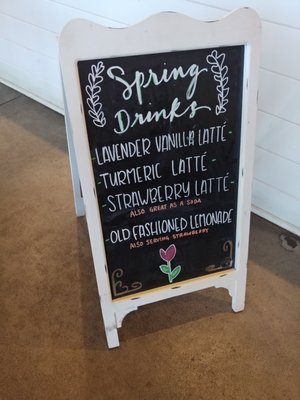 Spring
Drinks
LAVENDER VANILLA LATTÉ
TURMERIC LATTÉ
STRAWBERRY LATTÉ
ALSO GREAT AS A SODA
OLD FASHIONED LEMONADE
ALSO SERVING STRAWBERRY